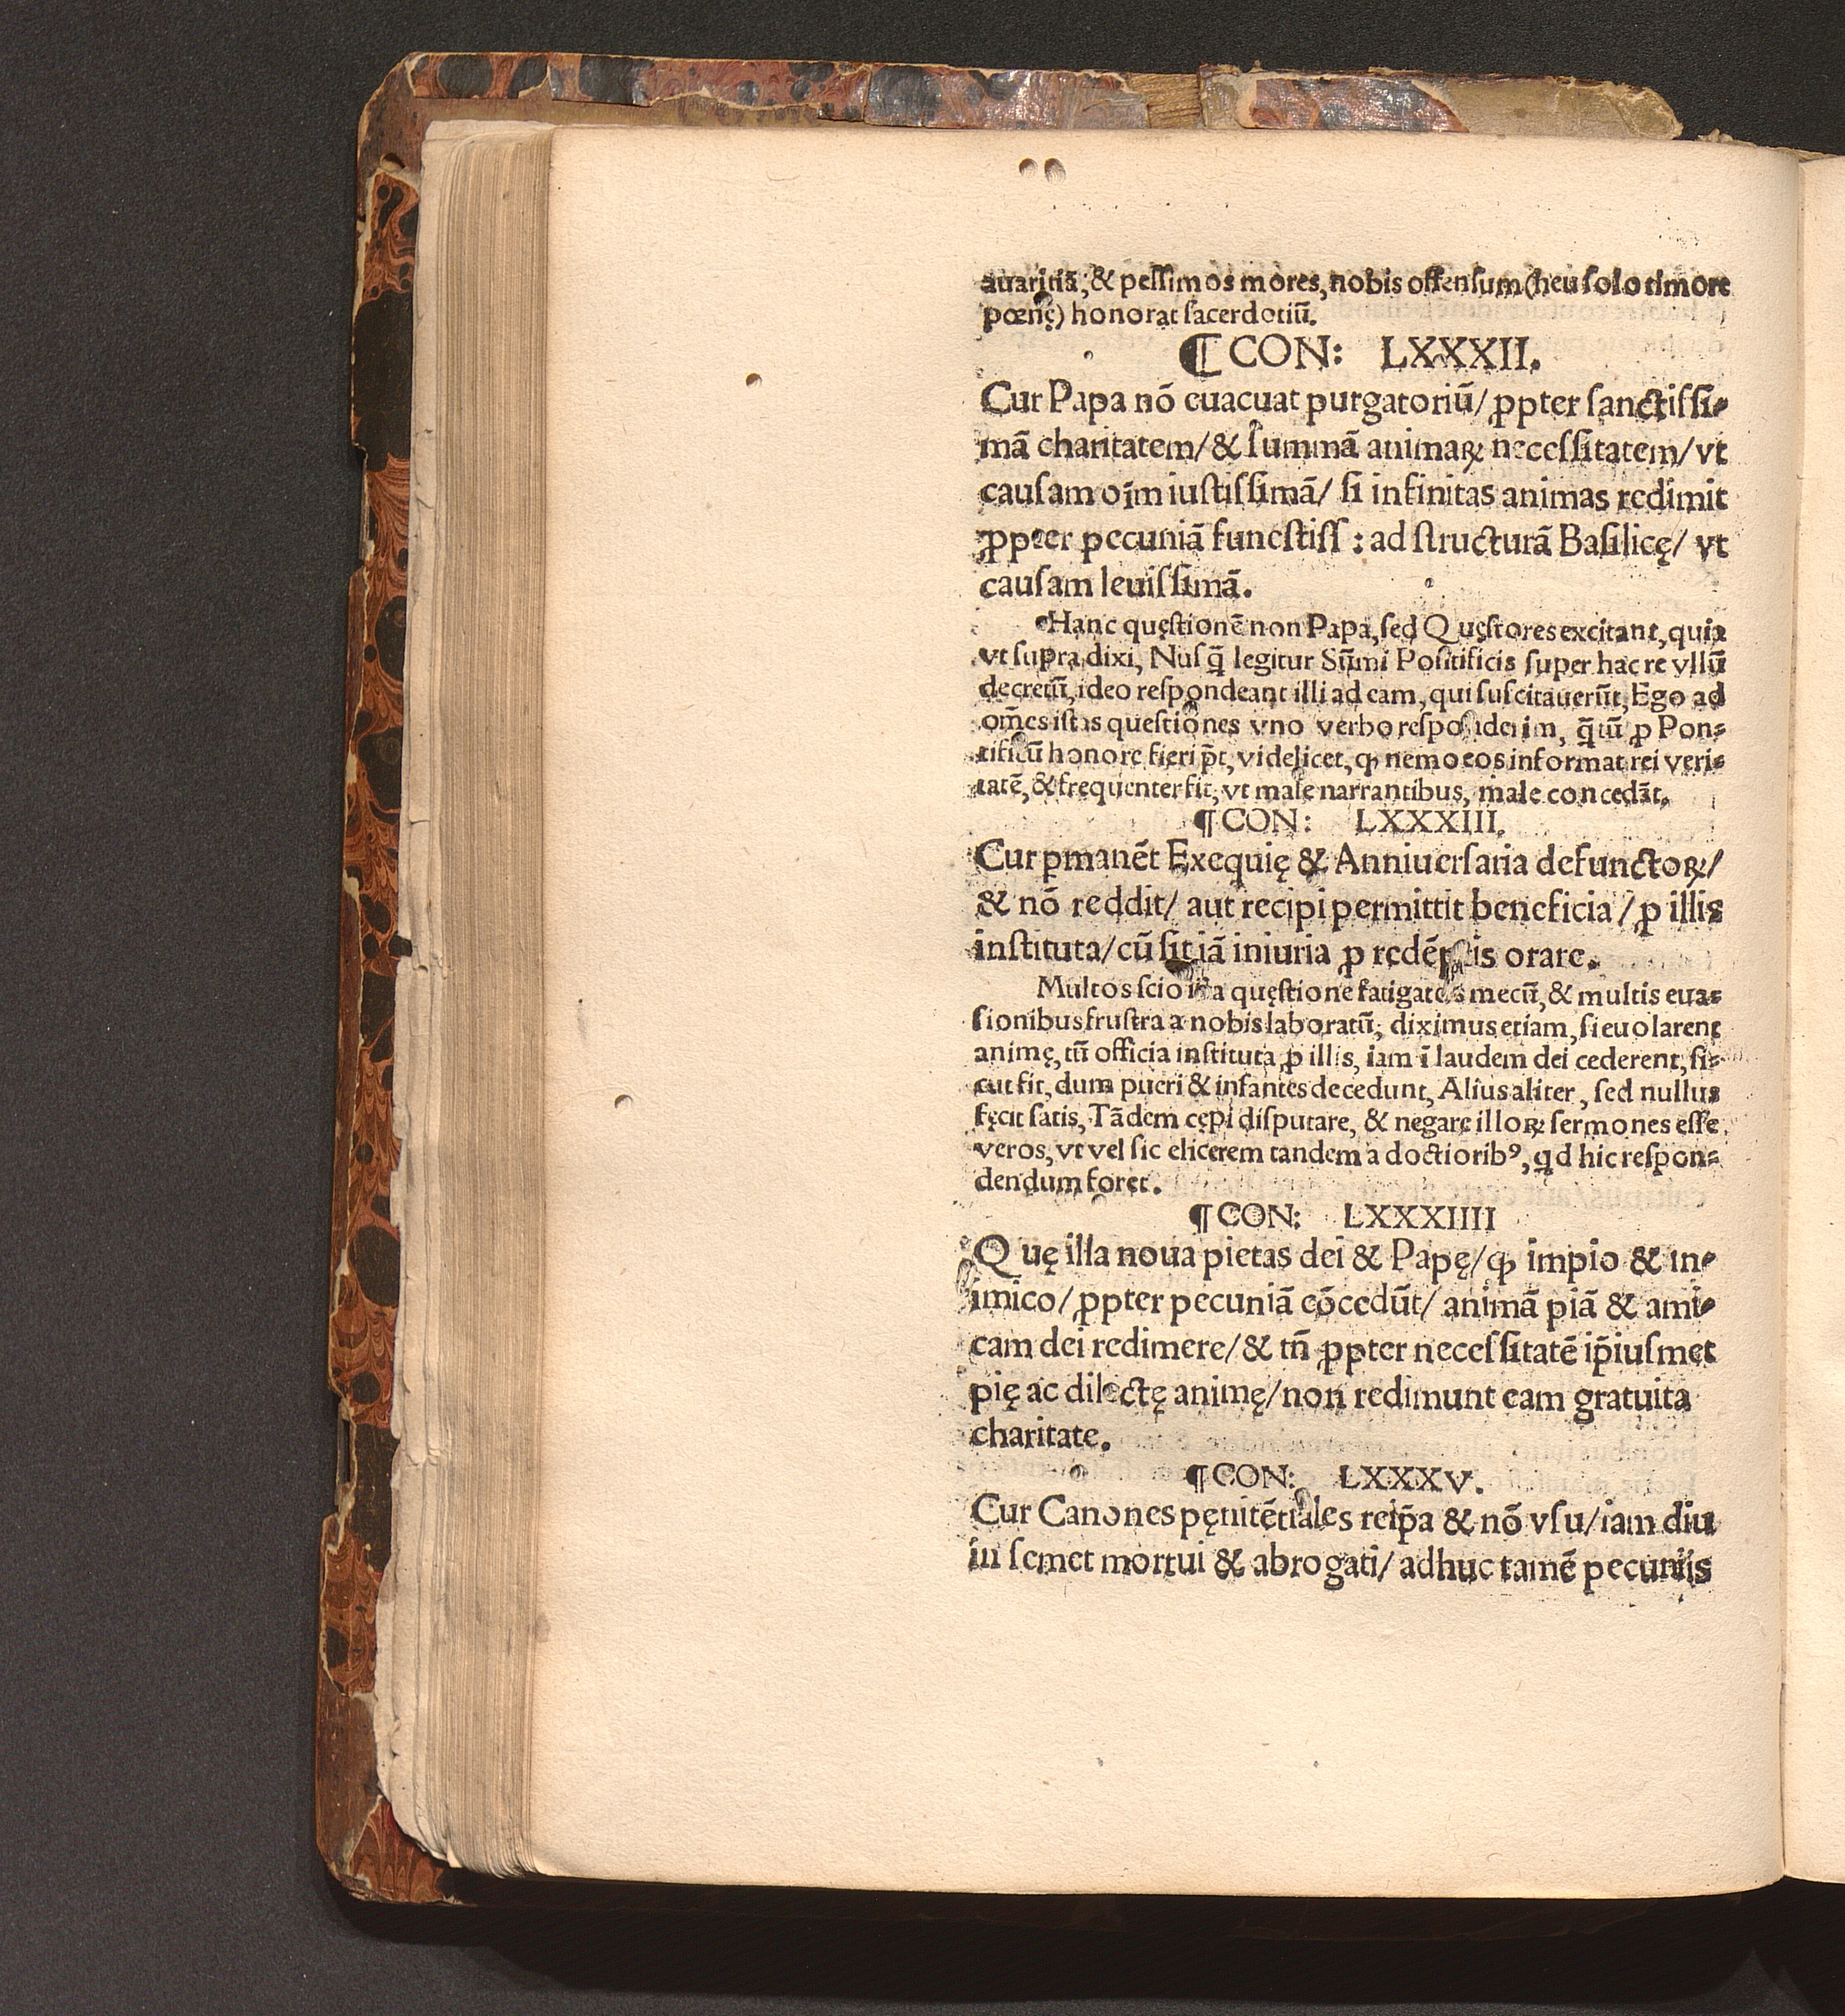 auaritiā, & peſſimos mores, nobis offenſum (heu ſolo timore
pœnę) honorat ſacerdotiū.
¶ CON: LXXXII.
Cur Papa nō euacuat purgatoriū/ ꝓpter ſanctiſſi-
mā charitatem/ & ſummā animaꝝ neceſſitatem/ vt
cauſam oīm iuſtiſſimā/ ſi infinitas animas redimit
ꝓpter pecuniā funeſtiſſ: ad ſtructurā Baſilicę/ vt
cauſam leuiſſimā.
Hanc quęſtionē non Papa, ſed Quęſtores excitant, quia
vt ſupra dixi, Nuſq̄ legitur Sūmi Pōtificis ſuper hac re vllū
decretū, ideo reſpondeant illi ad eam, qui ſuſcitauerūt, Ego ad
om̄es iſtas queſtiones vno verbo reſponderim, q̄tū ꝓ Pon-
tificū honore fieri p̄t, videlicet, ꝙ nemo eos informat rei veri-
tatē, & frequenter fit, vt male narrantibus, male concedāt.
¶ CON: LXXXIII.
Cur ꝑmanēt Exequię & Anniuerſaria defunctoꝝ/
& nō reddit/ aut recipi permittit beneficia/ ꝓ illis
inſtituta/ cū ſit iā iniuria ꝓ redēptis orare.
Multos ſcio iſta quęſtione fatigatos mecū, & multis eua-
ſionibus fruſtra a nobis laboratū, diximus etiam, ſi euolarent
animę, tū officia inſtituta ꝓ illis, iam ī laudem dei cederent, ſi-
cut fit, dum pueri & infantes decedunt, Alius aliter, ſed nullus
fęcit ſatis, Tādem cępi diſputare, & negare illoꝝ ſermones eſſe
veros, vt vel ſic elicerem tandem a doctioribꝰ, qd hic reſpon-
dendum foret.
¶ CON: LXXXIIII
Quę illa noua pietas dei & Papę/ ꝙ impio & in-
imico/ ꝓpter pecuniā cōcedūt/ animā piā & ami-
cam dei redimere/ & tn̄ ꝓpter neceſſitatē ip̄iuſmet
pię ac dilectę animę/ non redimunt eam gratuita
charitate.
¶ CON: LXXXV.
Cur Canones pęnitētiales reip̄a & nō vſu/ iam diu
in ſemet mortui & abrogati/ adhuc tamē pecuniis